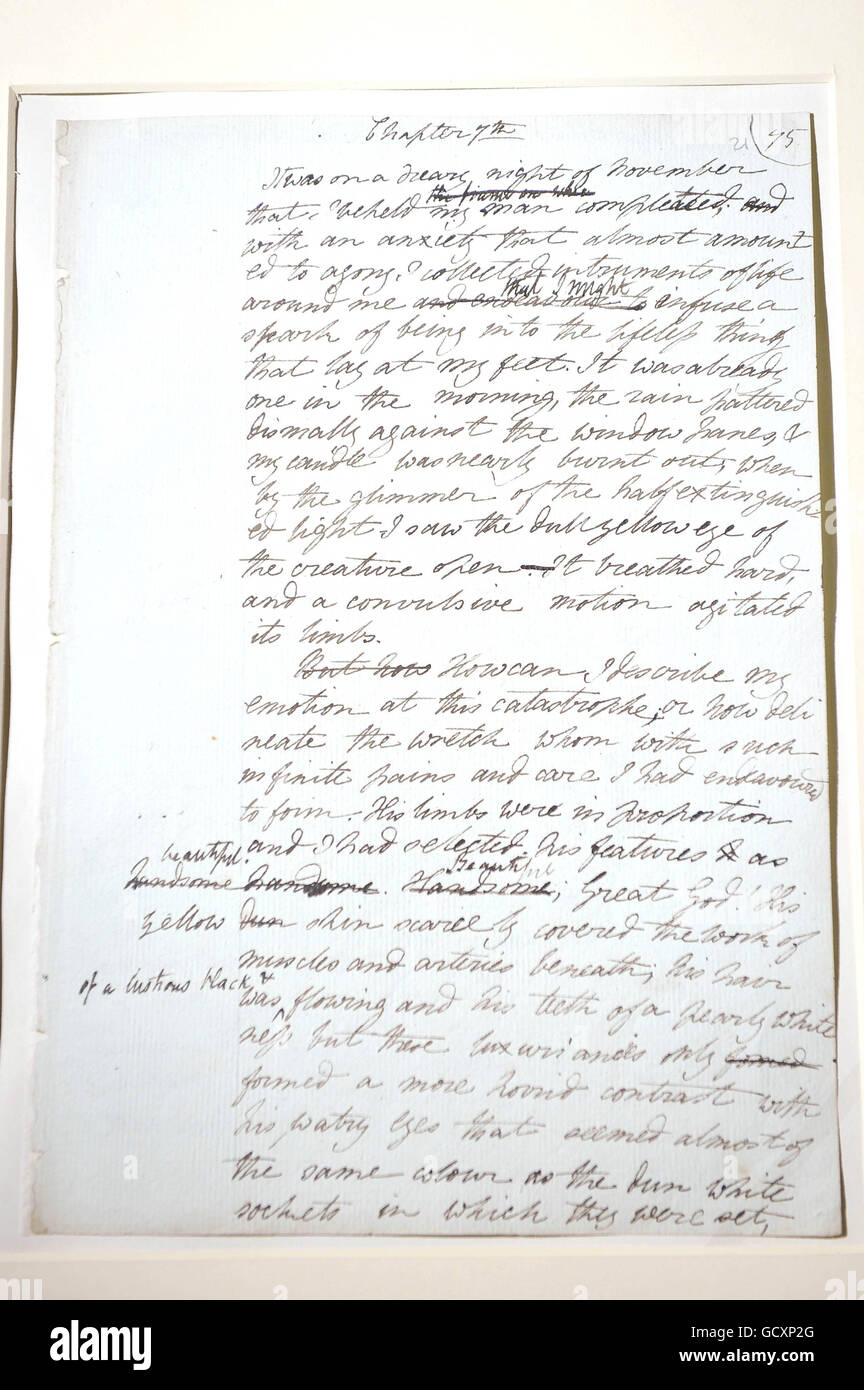 Chapter 7th
21 75
It was on a dreary night of November
the frame on whic
that I beheld my man compleated; and
with an anxiety that almost amount
ed to agony I collected intruments of life
that I might
around me and endeavour to infuse a
spark of being into the lifeless thing
that lay at my feet. It was already
one in the morning, the rain pattered
dismally against the window panes, &
my candle was nearly burnt out, when
by the glimmer of the half extinguish-
ed light I saw the dull yellow eye of
the creature open. It breathed hard,
and a convulsive motion agitated
its limbs.
But how How can I describe my
emotion at this catastrophe; or how deli
neate the wretch whom with such
infinite pains and care I had endavoured
to form. His limbs were in proportion
and I had selected his features & as
beautiful. Beautiful
handsome handsome. Handsome; Great God! His
yellow dun skin scarcely covered the work of
muscles and arteries beneath; his hair
of a lustrous black, &
was flowing and his teeth of a pearly white
ness but these luxuriancies only fomed
formed a more horrid contrast with
his watry eyes that seemed almost of
the same colour as the dun white
sockets in which they were set,
alamy
Image ID: GCXP2G
www.alamy.com